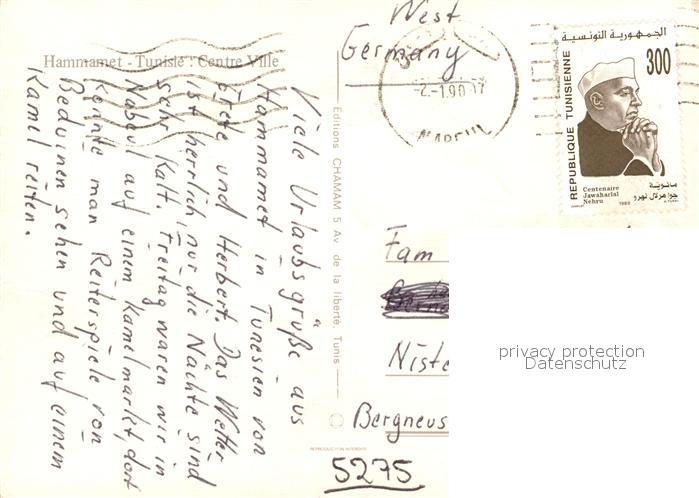 Hammamet - Tunisie : Centre Ville
Viele Urlaubsgrüße aus
Hammamet in Tunesien von
Grete und Herbert. Das Wetter
ist herrlich, nur die Nächte sind
sehr kalt. Freitag waren wir in
Nabeul auf einem Kamelmarkt, dort
konnte man Reiterspiele von
Beduinen sehen und auf einem
Kamel reiten.
Editions CHAMAM 5 Av de la liberté, Tunis
REPRODUCTION INTERDITE
West
Germany
-2.-1.90
NABEUL
الجمهورية التونسية
300
REPUBLIQUE TUNISIENNE
Centenaire
Jawaharlal
Nehru
مائوية
جواهرلال نهرو
1989
Fam
Niste
Bergneus
5275
privacy protection
Datenschutz